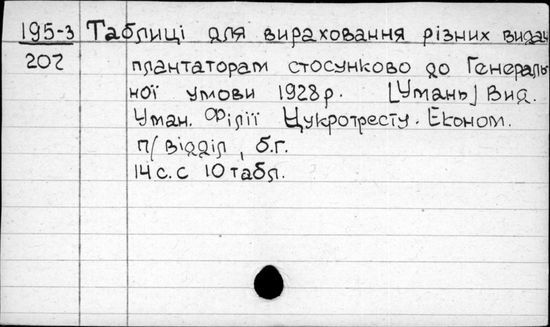 195-3 Таблиці для вирахованння різних видач
202 плантаторам стосунково до Генераль
ної умови 1928 р. [Умань] Вид.
Уман. Філії Цукротресту. Економ.
п/відділ, б.г.
14 с. с 10 табл.